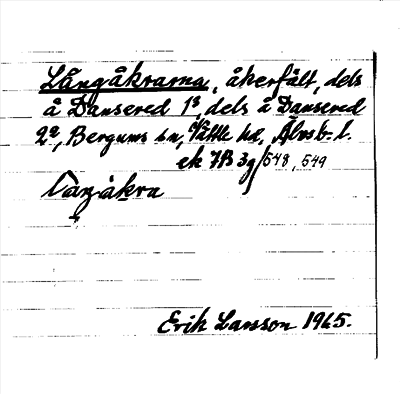 Långåkrarna, åkerfält, dels
å Dansered 1³, dels å Dansered
2², Bergums sn, Vättle hd, Älvsb. l.
ek JB 3g/548, 549
Långåkra
Erik Larsson 1965.